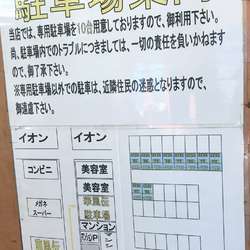 駐車場案内
当店では、専用駐車場を10台用意しておりますので、御利用下さい。
尚、駐車場内でのトラブルにつきましては、一切の責任を負いかねます
ので、御了承下さい。
※専用駐車場以外での駐車は、近隣住民の迷惑となりますので、
御遠慮下さい。
イオン
イオン
コンビニ
美容室
美容室
メガネ
スーパー
駐車場
マンション